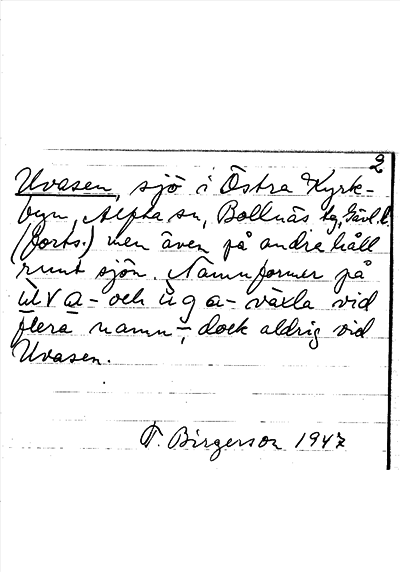 2
Uvasen, sjö i Östra Kyrk-
byn, Alfta sn, Bollnäs tg, Gävl. l.
(forts.) men även på andra håll
runt sjön. Namnformer på
ùva- och ùga- växla vid
flera namn -, dock aldrig vid
Uvasen.
F. Birgerson 1947